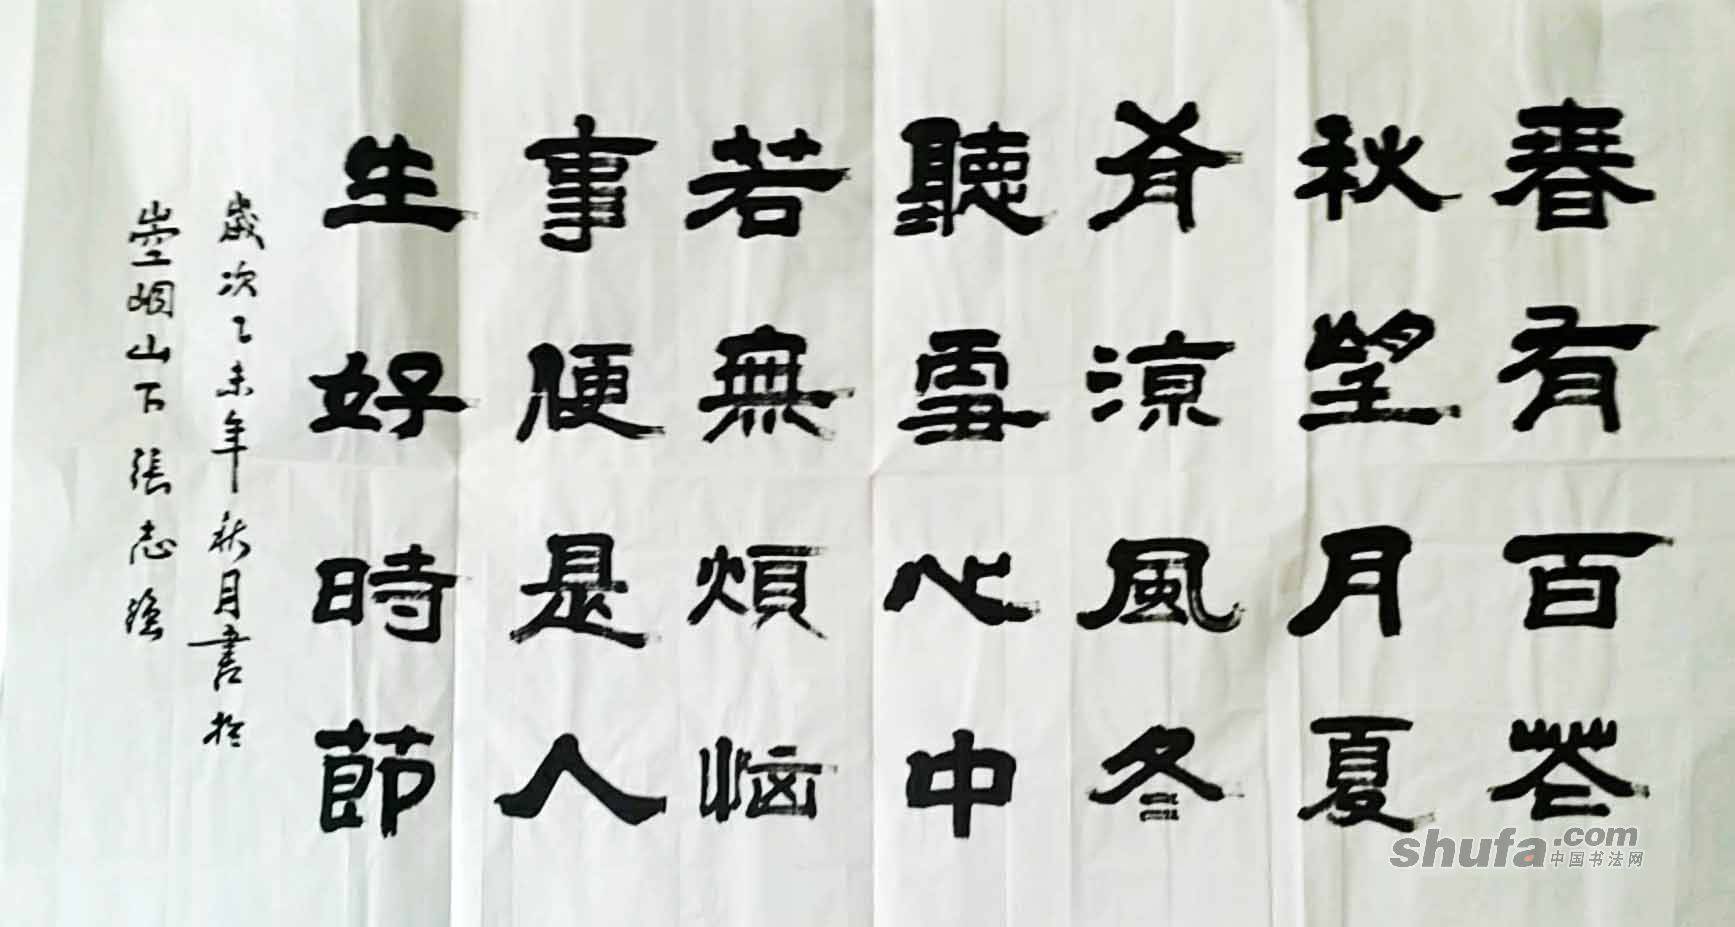 春有百花
秋望月夏
有涼風冬
聽雪心中
若無煩惱
事便是人
生好時節
歲次乙未年秋月書於
崆峒山下張志強
shufa.com
中国书法网